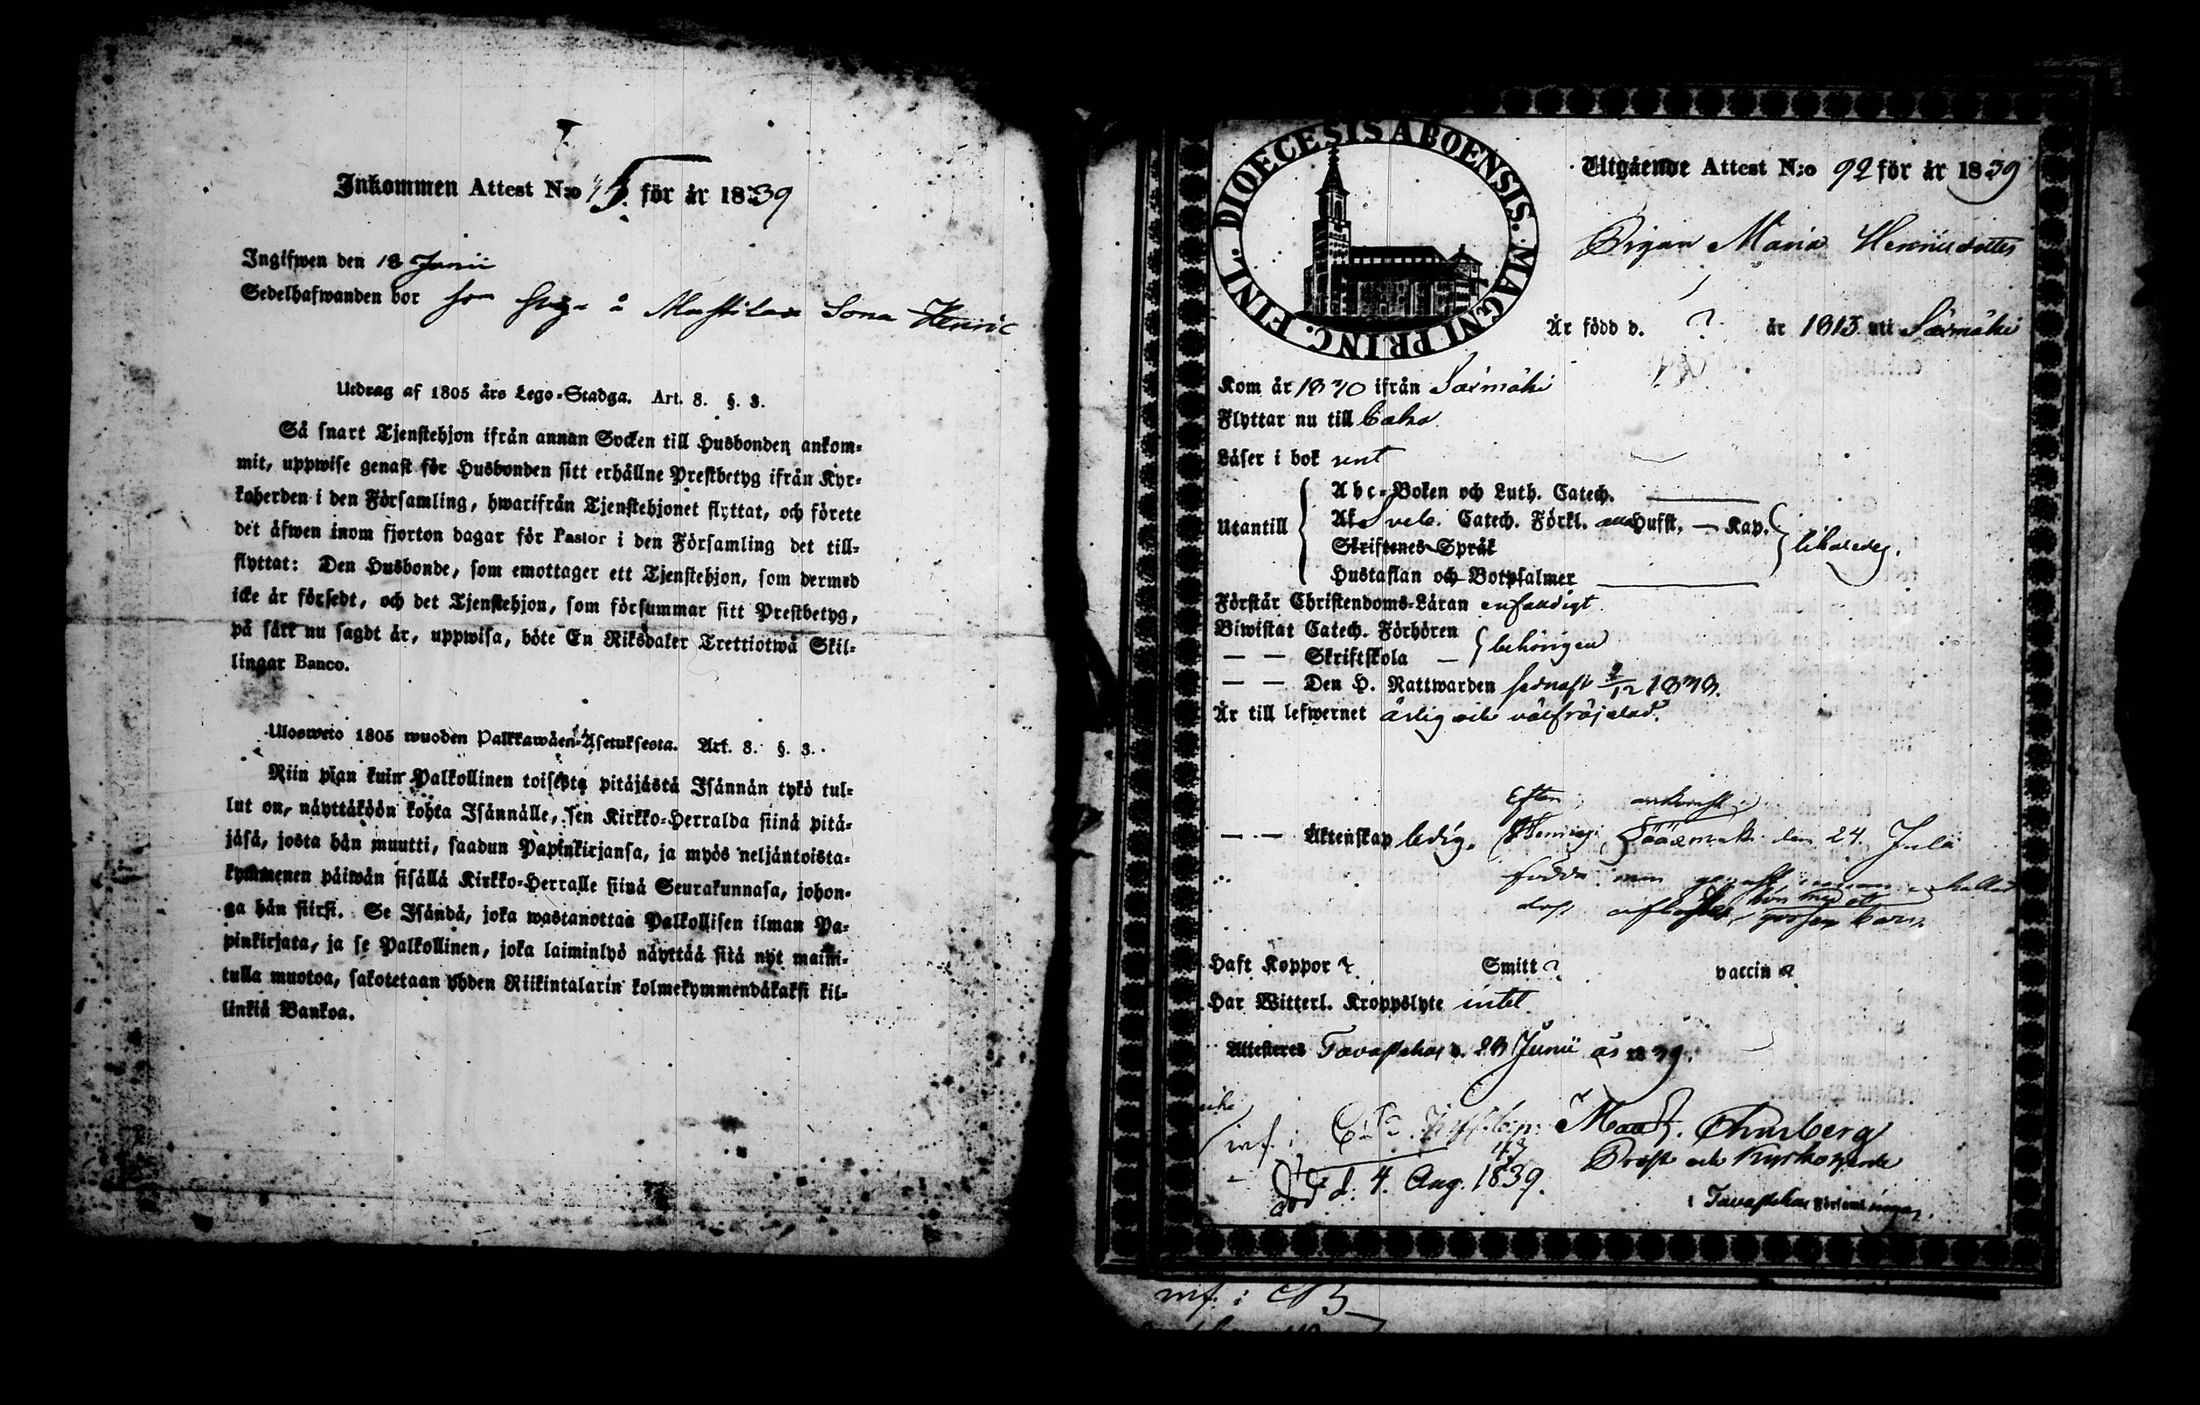 Inkommen Attest N:o 15 för år 1839
Ingifwen den 18 Junii
Sedelhafwanden bor å Mastila Sona Henric
Utdrag af 1805 års Lego-Stadga. Art. 8. §. 3.
Så snart Tjenstehjon ifrån annan Socken till Husbonden ankom-
mit, uppwise genast för Husbonden sitt erhållne Prestbetyg ifrån Kyr-
koherden i den Församling, hwarifrån Tjenstehjonet flyttat, och förete
det äfwen inom fjorton dagar för Pastor i den Församling det till-
flyttat: Den Husbonde, som emottager ett Tjenstehjon, som dermed
icke är försedt, och det Tjenstehjon, som försummar sitt Prestbetyg,
på sätt nu sagdt är, uppwisa, böte En Riksdaler Trettiotwå Skil-
lingar Banco.
Ulosweto 1805 wuoden Palkkawäen-Asetuksesta. Art. 8. §. 3.
Niin pian kuin Palkollinen toisesta pitäjästä Isännän tykö tul-
lut on, näyttäköön kohta Isännälle, sen Kirkko-Herralda siinä pitä-
jäsä, josta hän muutti, saadun Papinkirjansa, ja myös neljäntoista-
kymmenen päiwän sisällä Kirkko-Herralle siinä Seurakunnasa, johon-
ga hän siirsi. Se Isändä, joka wastanottaa Palkollisen ilman Pa-
pinkirjata, ja se Palkollinen, joka laiminlyö näyttää sitä nyt maini-
tulla muotoa, sakotetaan yhden Riikintalarin kolmekymmendäkaksi kil-
linkiä Bankoa.
DIOECESIS ABOENSIS. MAGNI PRINC. FINL.
Utgående Attest N:o 92 för år 1839
Pigan Maria Henricsdotter
Är född d. ? år 1815 uti Säxmäki
Kom år 1830 ifrån Säxmäki
Flyttar nu till
Läser i bok rent
Utantill
Abc-Boken och Luth. Catech.
Af Sveb. Catech. Förkl. Husst. — Kap.
Skriftenes Språk
Hustaflan och Botpsalmer
likaledes.
Förstår Christendoms-Läran enfaldigt.
Biwistat Catech. Förhören
— — Skriftskola — behörigen
— — Den H. Nattwarden sednast 2/12 1838.
Är till lefwernet ärlig och välfräjdad.
Efter ankomst
— — Äktenskap ledig. Sääxmäki den 24 Julii
född
hon med et
barn
Haft Koppor ? Smitt ? vaccin ?
Har Witterl. Kroppslyte intet.
Attesteras Tavastehus d. 23 Junii år 1839.
inf. i
död d. 4. Aug. 1839.
Prost och Kyrkoherde
i Tavastehus Församlingar.
inf. i